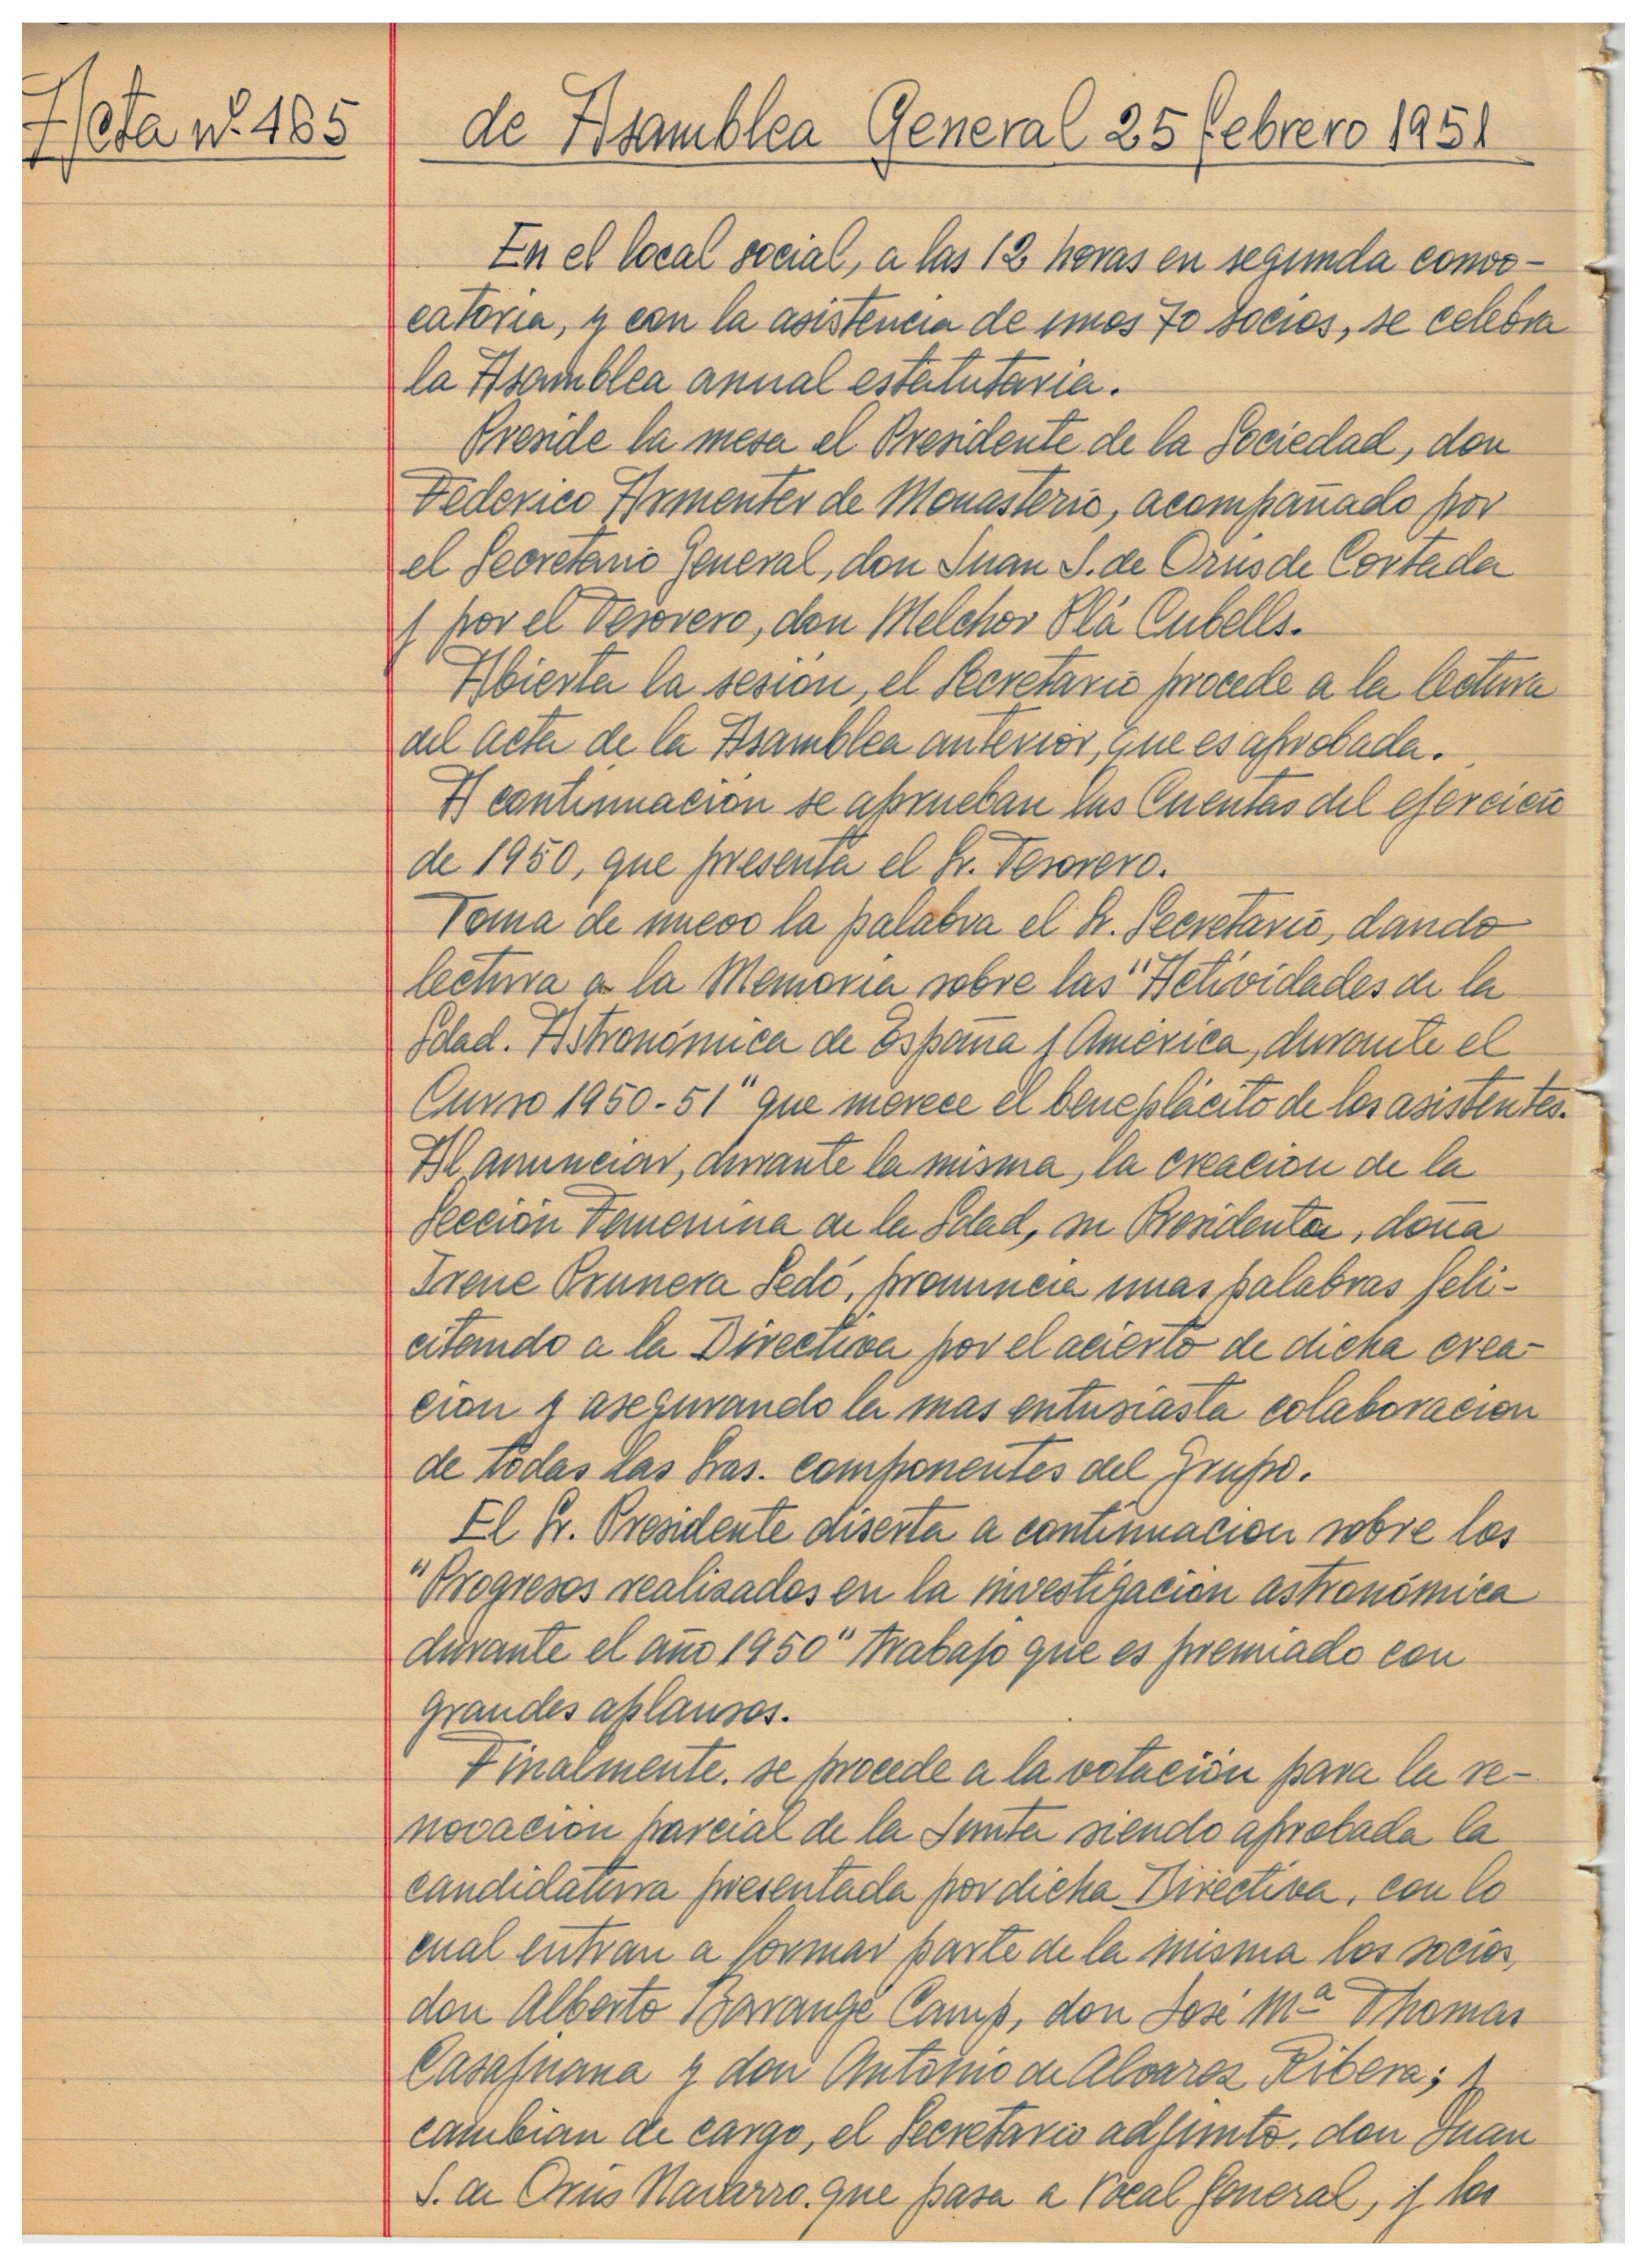 Acta nº 465 de Asamblea General 25 febrero 1951
En el local social, a las 12 horas en segunda convo-
catoria, y con la asistencia de unos 70 socios, se celebra
la Asamblea anual estatutaria.
Preside la mesa el Presidente de la Sociedad, don
Federico Armenter de Monasterio, acompañado por
el Secretario General, don Juan S. de Orús de Cortada
y por el Tesorero, don Melchor Plá Cubells.
Abierta la sesión, el Secretario procede a la lectura
del acta de la Asamblea anterior, que es aprobada.
A continuación se aprueban las Cuentas del ejercicio
de 1950, que presenta el Sr. Tesorero.
Toma de nuevo la palabra el Sr. Secretario, dando
lectura a la Memoria sobre las "Actividades de la
Sdad. Astronómica de España y América, durante el
Curso 1950-51" que merece el beneplácito de los asistentes.
Al anunciar, durante la misma, la creacion de la
Sección Femenina de la Sdad, su Presidenta, doña
Irene Prunera Sedó, pronuncia unas palabras feli-
citando a la Directiva por el acierto de dicha crea-
cion y asegurando la mas entusiasta colaboracion
de todas las Sras. componentes del Grupo.
El Sr. Presidente diserta a continuacion sobre los
"Progresos realisados en la investigación astronómica
durante el año 1950" trabajo que es premiado con
grandes aplausos.
Finalmente. se procede a la votación para la re-
novacion parcial de la Junta siendo aprobada la
candidatura presentada por dicha Directiva, con lo
cual entran a formar parte de la misma los socios,
don Alberto Barangé Camp, don José Mª Thomas
Casajuana y don Antonio de Alvarez Ribera; y
cambian de cargo, el Secretario adjunto, don Juan
S. de Orús Navarro. que pasa a Vocal General, y los